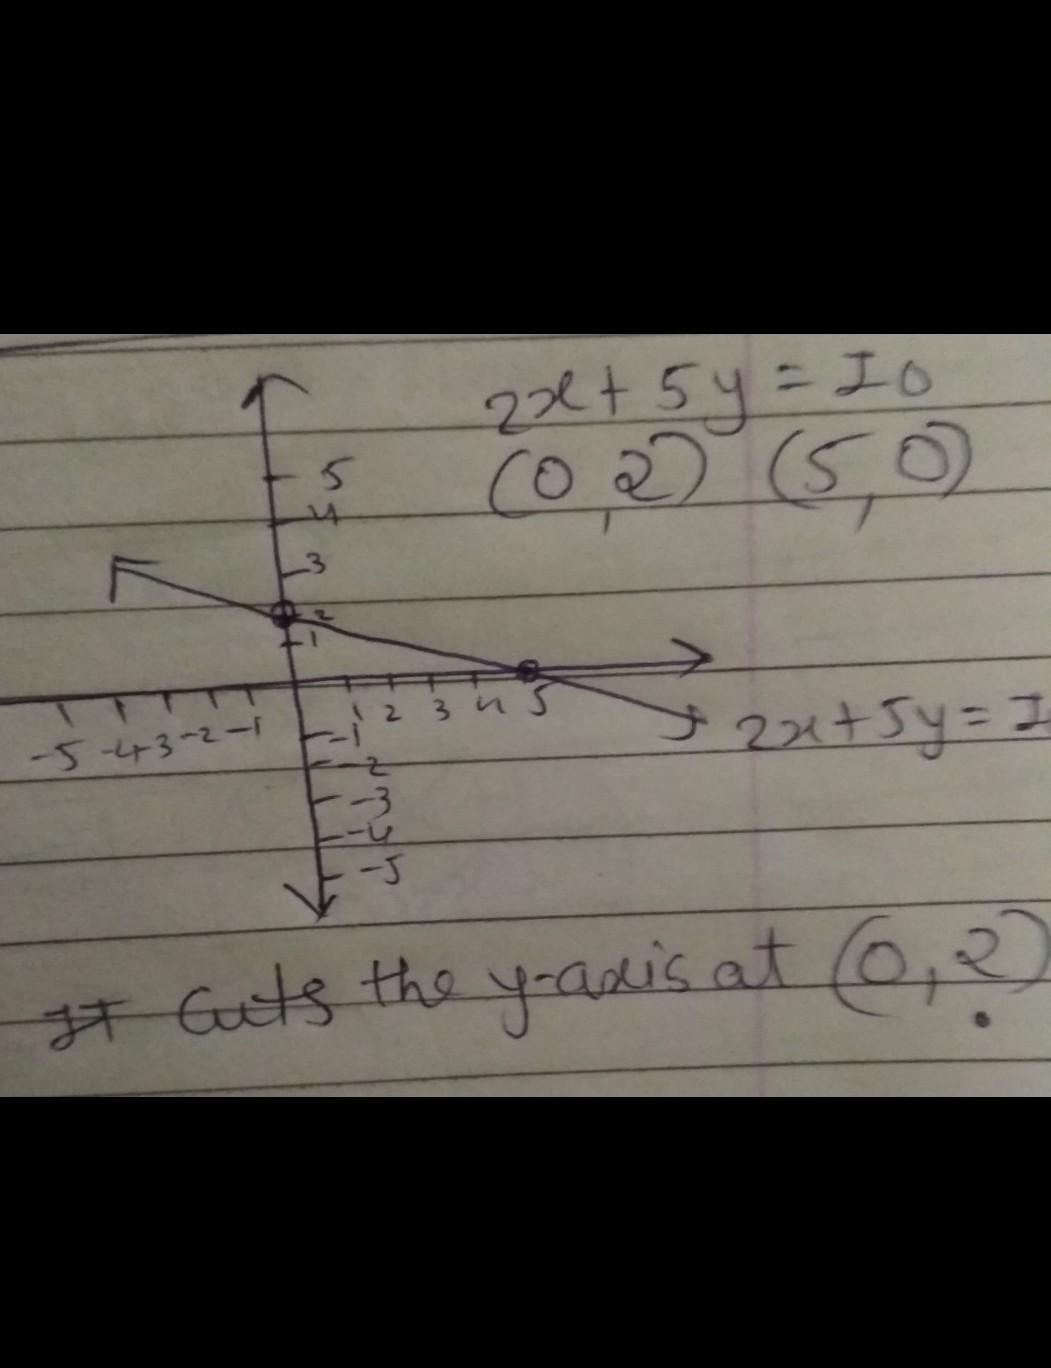 2x + 5y = IO
(0, 2) (5, 0)
5
4
3
2
1
-5 -4 -3 -2 -1 1 2 3 4 5
-1
-2
-3
-4
-5
2x + 5y = I
It Cuts the y-axis at (0, 2).